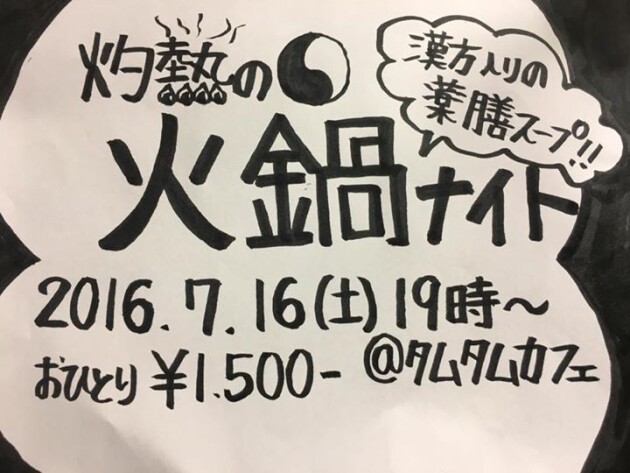 灼熱の
火鍋ナイト
漢方入りの
薬膳スープ!!
2016.7.16(土)19時〜
おひとり ¥1.500- @タムタムカフェ